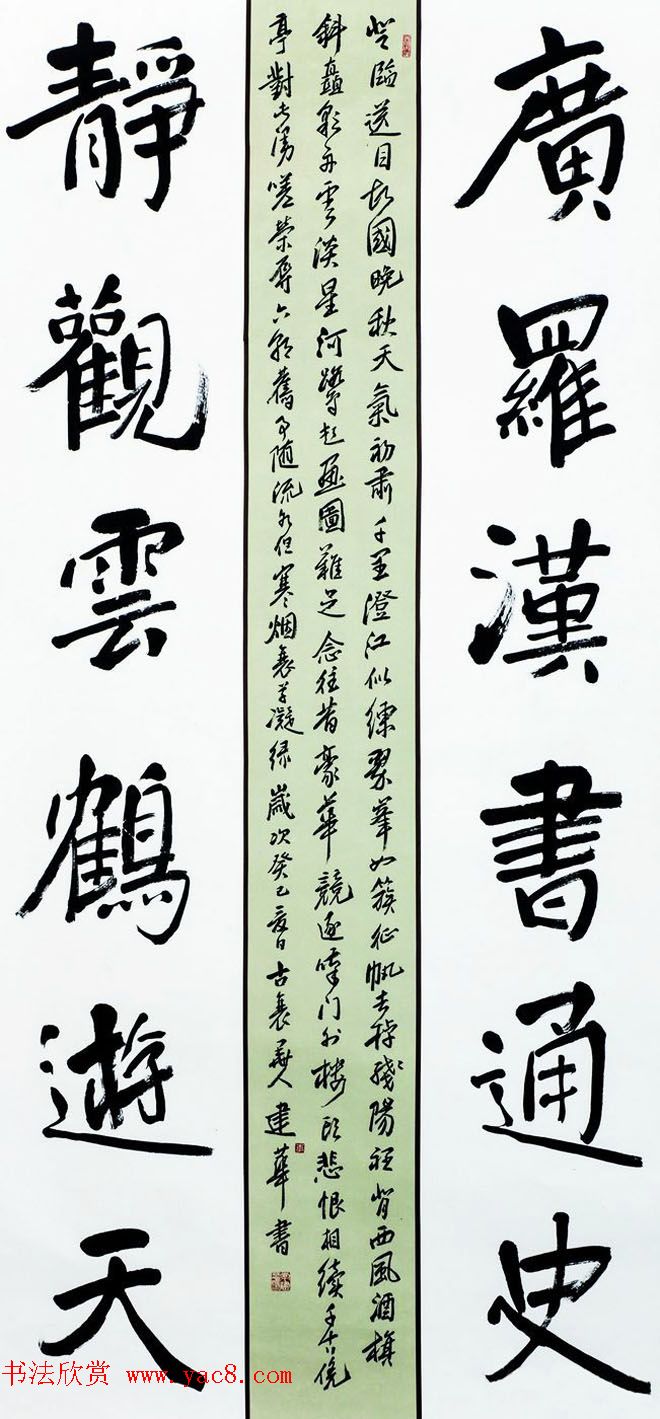 廣羅漢書通史
登臨送目故國晚秋天氣初肅千里澄江似練翠峯如簇征帆去棹殘陽裡背西風酒旗
斜矗彩舟雲淡星河鷺起画圖難足念往昔豪華競逐嘆门外楼头悲恨相續千古凭
亭對此漫嗟榮辱六朝舊事随流水但寒烟衰草凝绿 歲次癸巳夏日古襄人建華書
靜觀雲鶴遊天
书法欣赏 www.yac8.com